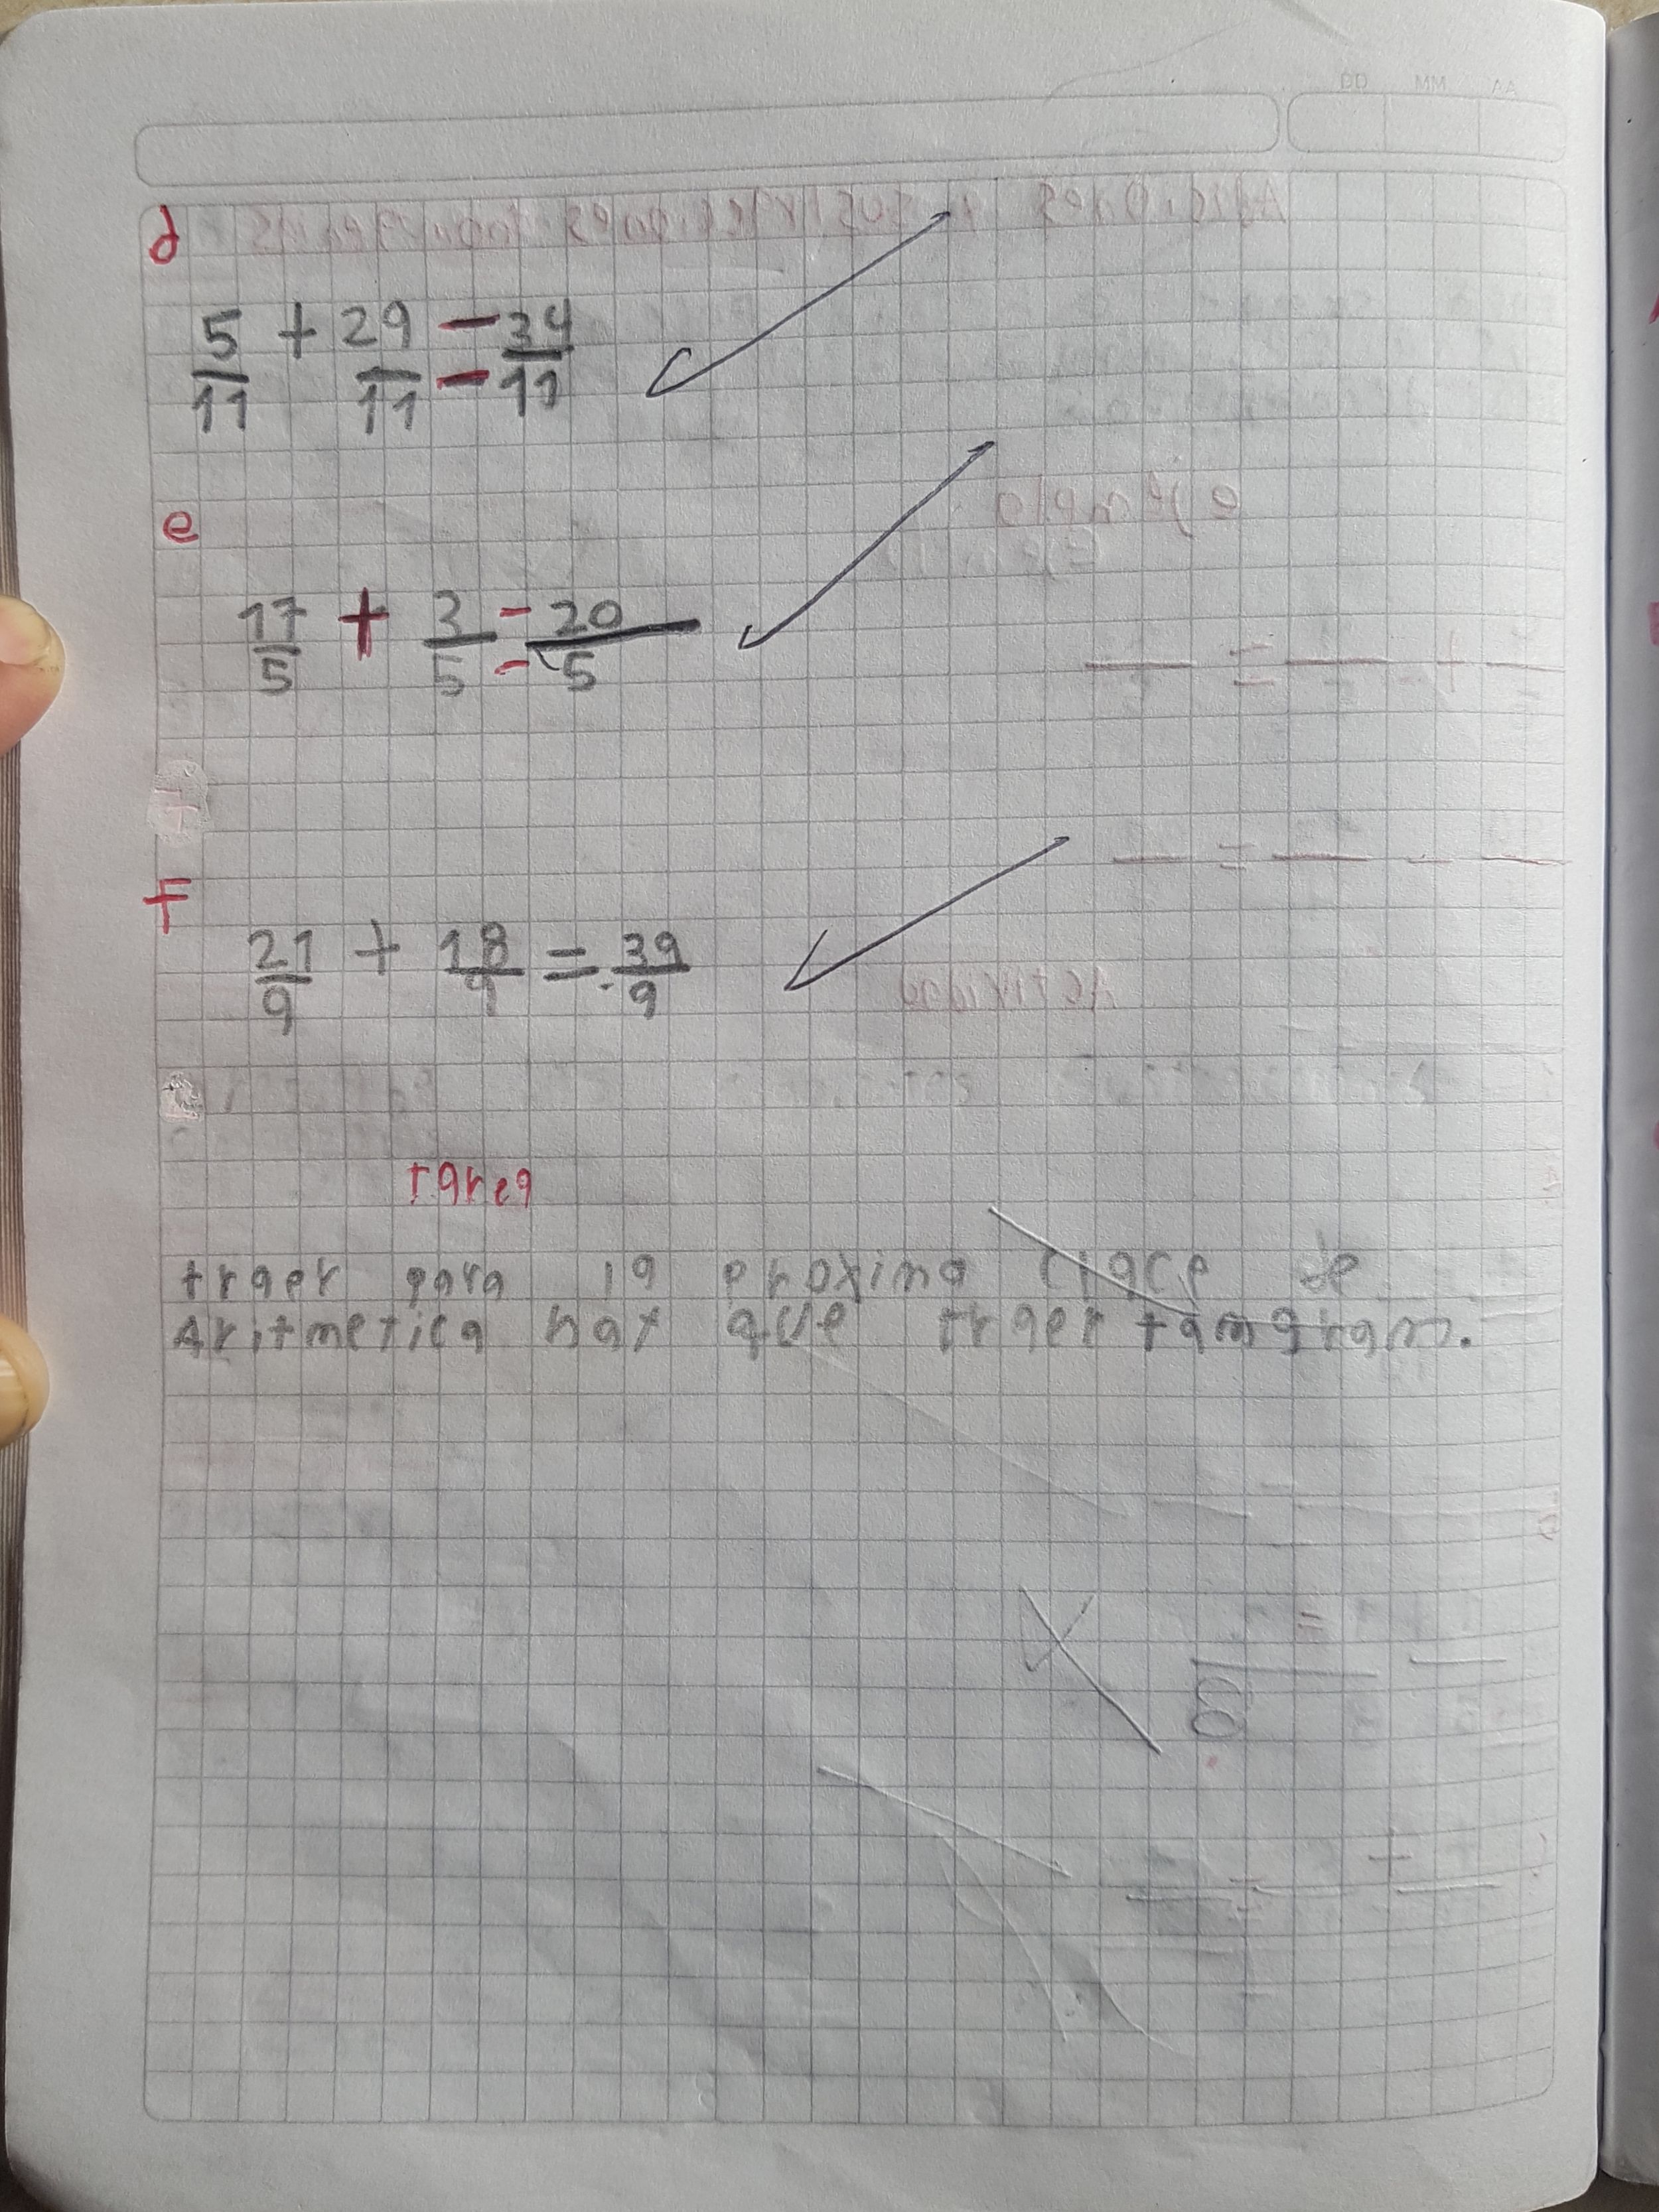 DD MM AA
d
5 + 29 = 34
11 11 11
e
17 + 3 = 20
5 5 5
F
21 + 18 = 39
9 9 9
tarea
traer para la proxima clace de
Aritmetica hay que traer tamgram.